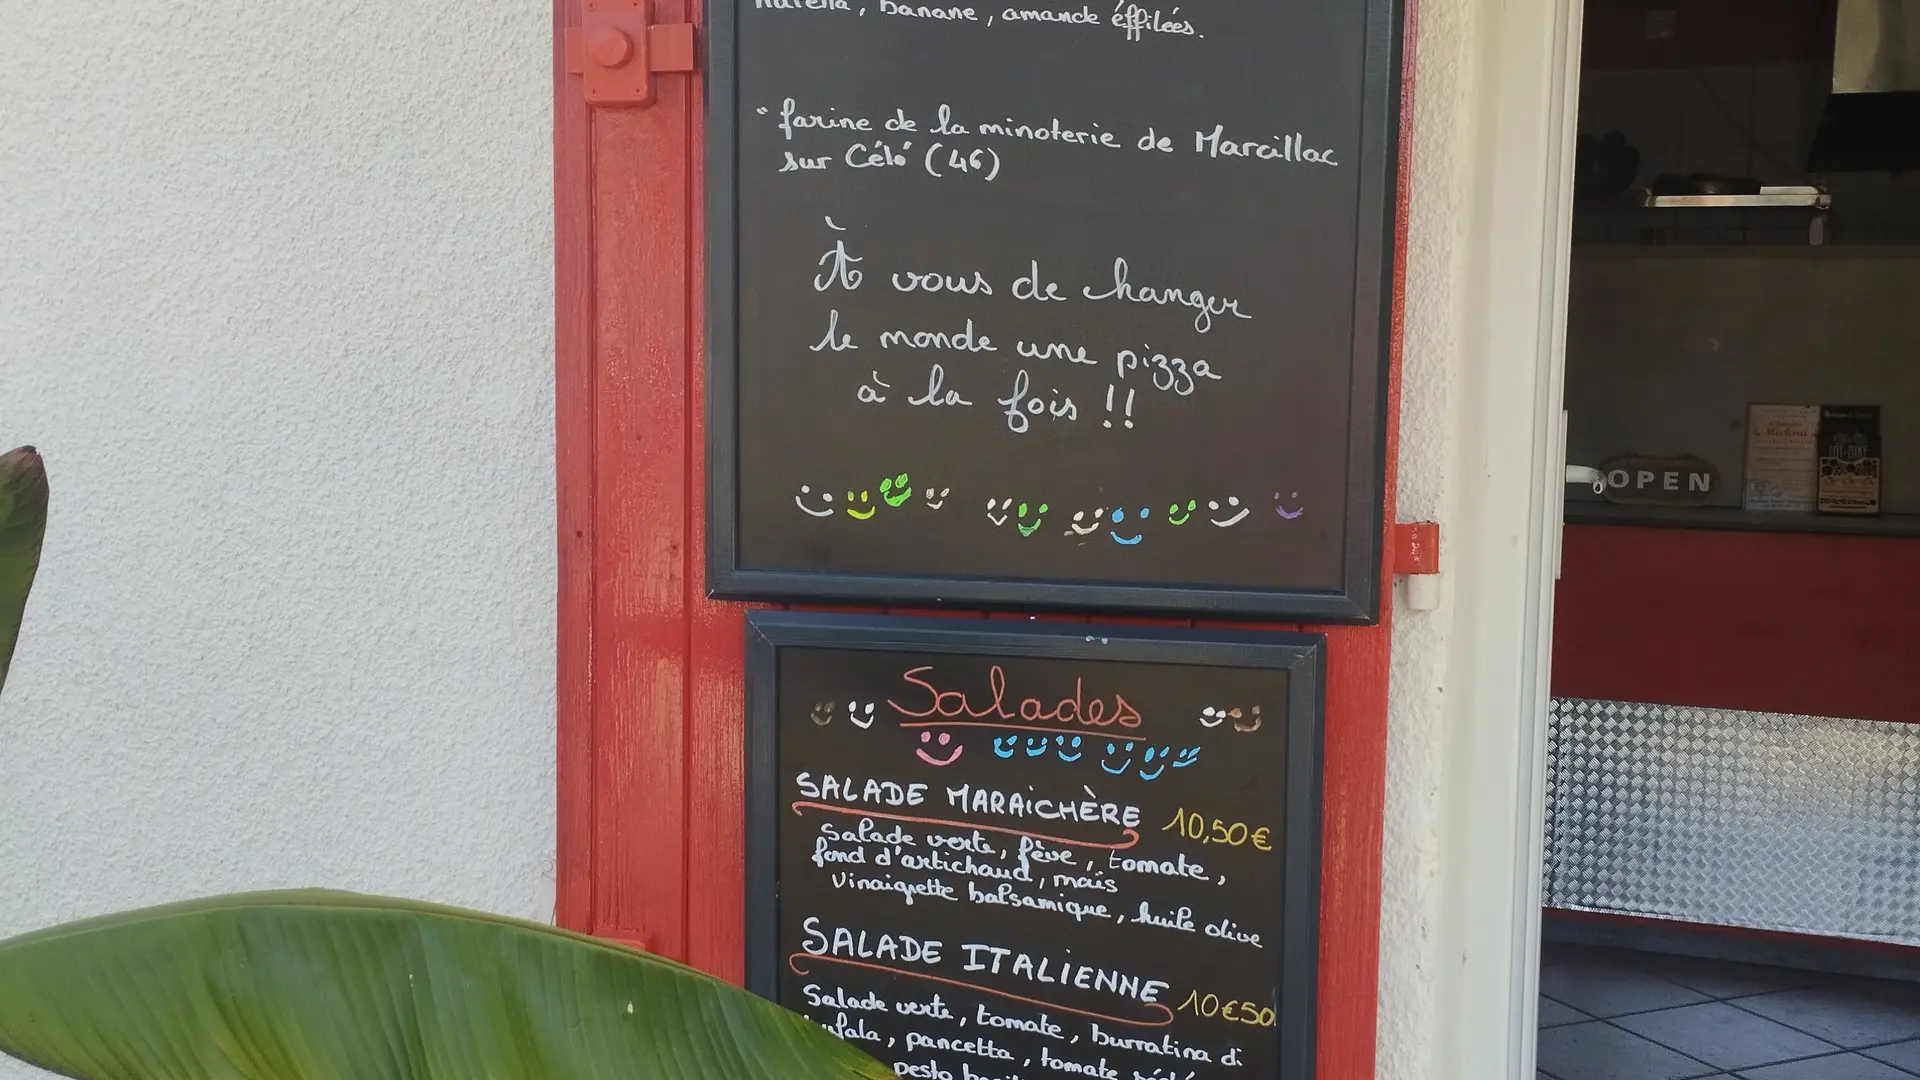 nutella, banane, amande éffilées.
* farine de la minoterie de Marcillac
sur Célé (46)
À vous de changer
le monde une pizza
à la fois !!
OPEN
Salades
SALADE MARAiCHÈRE 10,50€
salade verte, fève, tomate,
fond d'artichaud, maïs
vinaigrette balsamique, huile olive
SALADE ITALiENNE 10€50
Salade verte, tomate, burratina di
pancetta, tomate
pesto